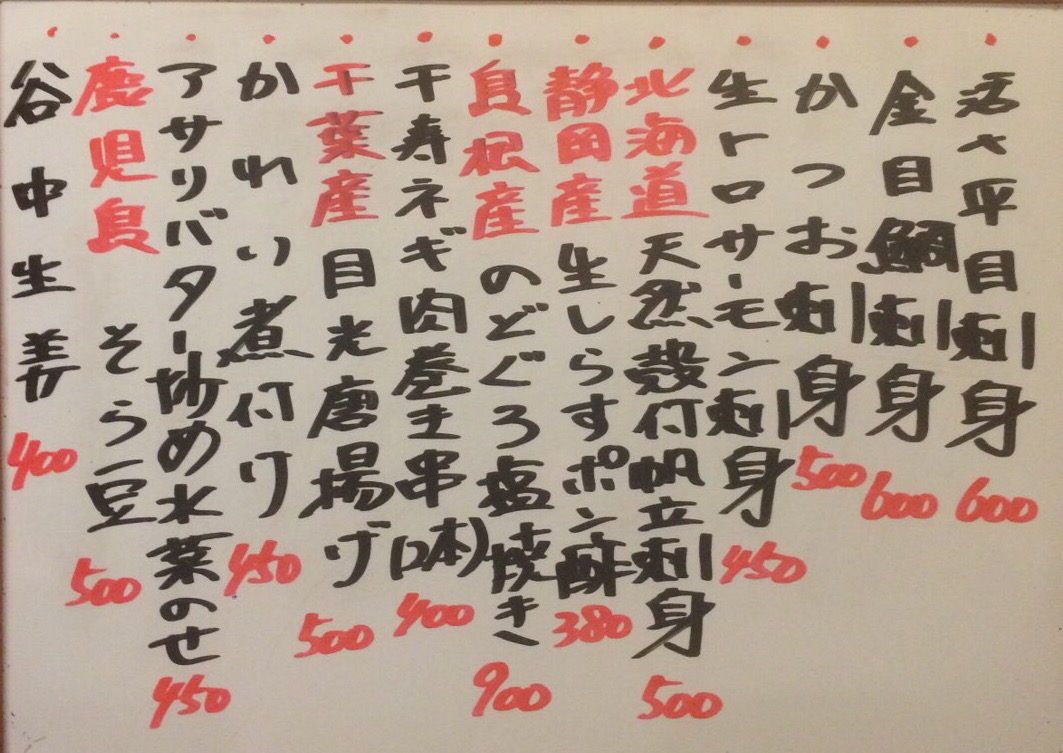 活〆平目刺身 600
金目鯛刺身 600
かつお刺身 500
生トロサーモン刺身 450
北海道 天然殻付帆立刺身 500
静岡産 生しらすポン酢 380
島根産 のどぐろ塩焼き 900
千寿ネギ肉巻き串(2本) 400
千葉産 目光唐揚げ 500
かれい煮付け 450
アサリバター炒め水菜のせ 450
鹿児島 そら豆 500
谷中生姜 400